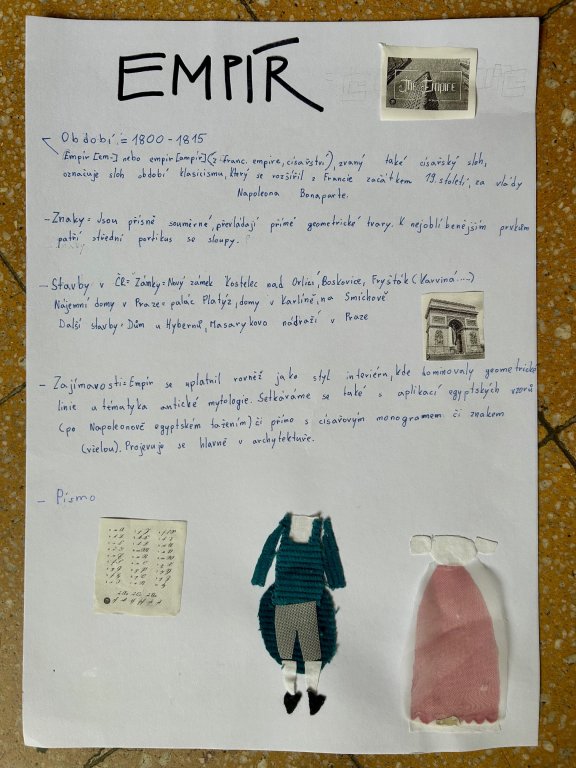 EMPÍR
The Empire
Období = 1800 - 1815
Empír [em-] nebo empir [ampír] (z franc. empire, císařství), zvaný také císařský sloh,
označuje sloh období klasicismu, který se rozšířil z Francie začátkem 19. století, za vlády
Napoleona Bonaparte.
- Znaky = Jsou přísně souměrné, převládají přímé geometrické tvary. K nejoblíbenějším prvkům
patří střední portikus se sloupy.
- Stavby v ČR = Zámky = Nový zámek Kostelec nad Orlicí, Boskovice, Fryšták (Karviná....)
Nájemní domy v Praze = palác Platýz, domy v Karlíně, na Smíchově
Další stavby = Dům u Hybernů, Masarykovo nádraží v Praze
- Zajímavosti = Empír se uplatnil rovněž jako styl interiérů, kde dominovaly geometrické
linie a tématyka antické mytologie. Setkáváme se také s aplikací egyptských vzorů
(po Napoleonově egyptském tažením) či přímo s císařovým monogramem či znakem
(včelou). Projevuje se hlavně v archytektuře.
- Písmo